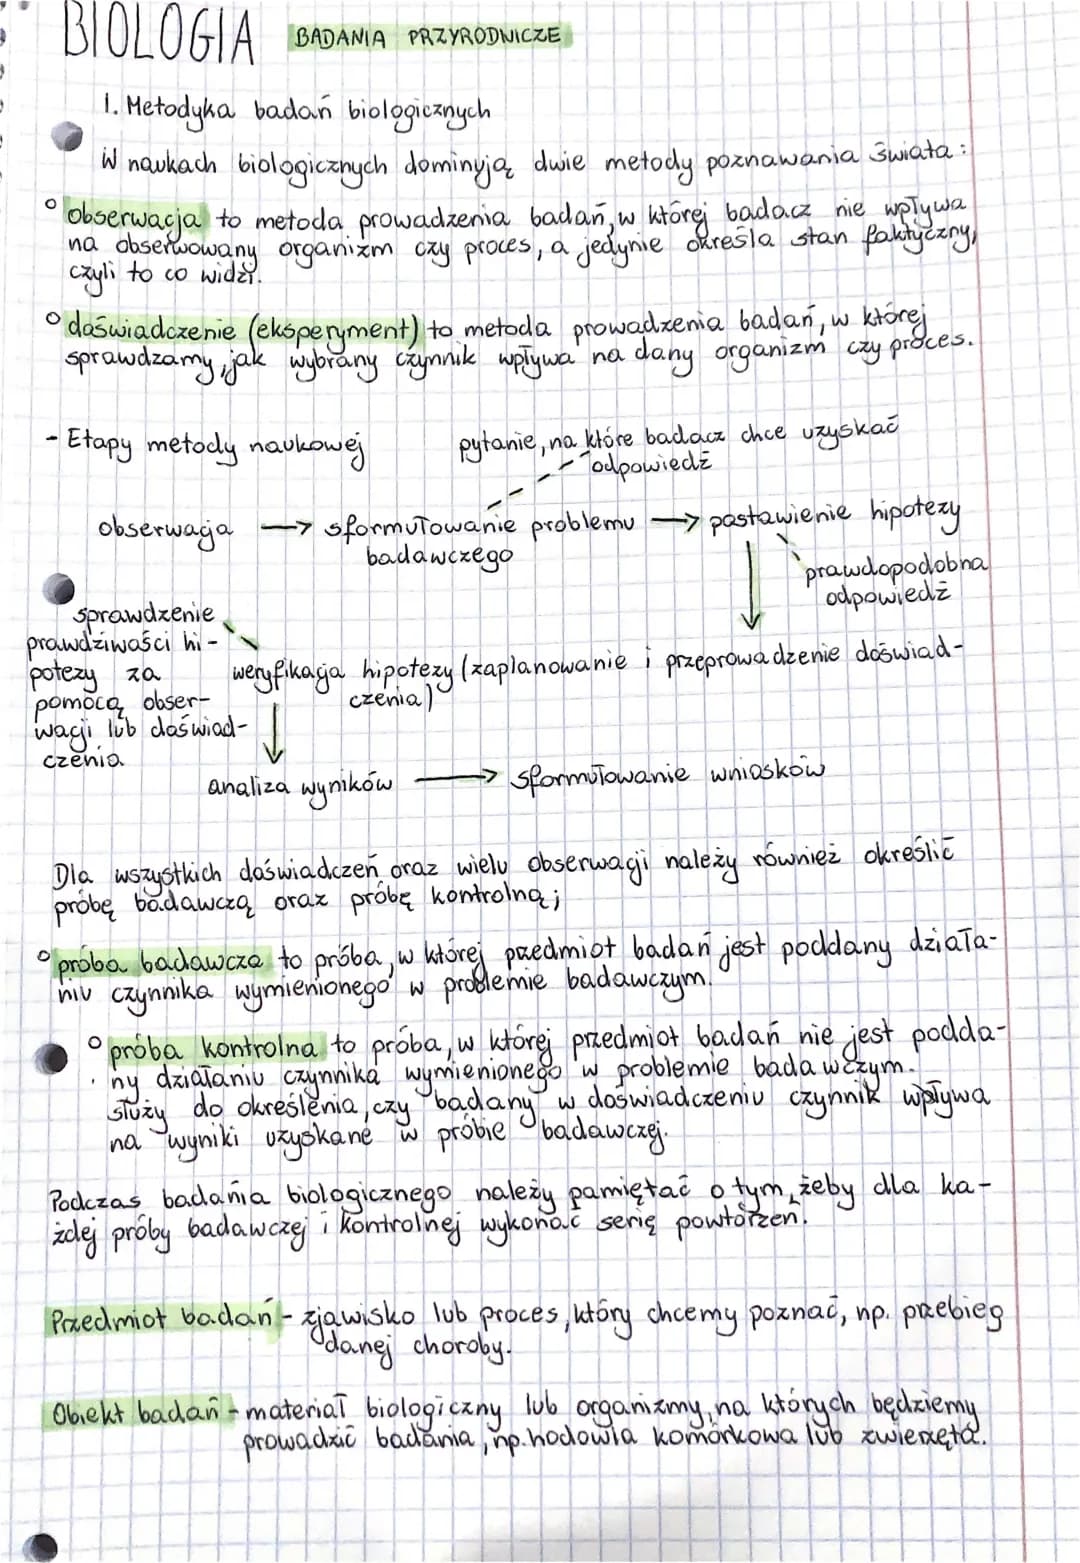 BIOLOGIA BADANIA PRZYRODNICZE
1. Metodyka badań biologicznych
W naukach biologicznych dominują dwie metody poznawania świata:
obserwacja to metoda prowadzenia badań, w której badacz nie wpływa
na obserwowany organizm czy proces, a jedynie określa stan faktyczny,
czyli to co widzi.
doświadczenie (eksperyment) to metoda prowadzenia badań, w której
sprawdzamy, jak wybrany czynnik wpływa na dany organizm czy proces.
- Etapy metody naukowej
pytanie, na które badacz chce uzyskać
odpowiedź
obserwacja → sformułowanie problemu → postawienie hipotezy
badawczego
prawdopodobna
odpowiedź
sprawdzenie
prawdziwości hi-
potezy za
pomocą obser-
wacji lub doświad-
czenia
weryfikacja hipotezy (zaplanowanie i przeprowadzenie doświad-
czenia)
analiza wyników → sformułowanie wniosków
Dla wszystkich doświadczeń oraz wielu obserwacji należy również określić
próbę badawczą oraz próbę kontrolną;
próba badawcza to próba, w której przedmiot badań jest poddany działa-
niu czynnika wymienionego w problemie badawczym.
próba kontrolna to próba, w której przedmiot badań nie jest podda-
ny działaniu czynnika wymienionego w problemie badawczym.
służy do określenia, czy badany w doświadczeniu czynnik wpływa
na wyniki uzyskane w próbie badawczej.
Podczas badania biologicznego należy pamiętać o tym, żeby dla ka-
żdej próby badawczej i kontrolnej wykonać serię powtórzeń.
Przedmiot badań - zjawisko lub proces, który chcemy poznać, np. przebieg
danej choroby.
Obiekt badań - materiał biologiczny lub organizmy, na których będziemy
prowadzić badania, np. hodowla komórkowa lub zwierzęta.